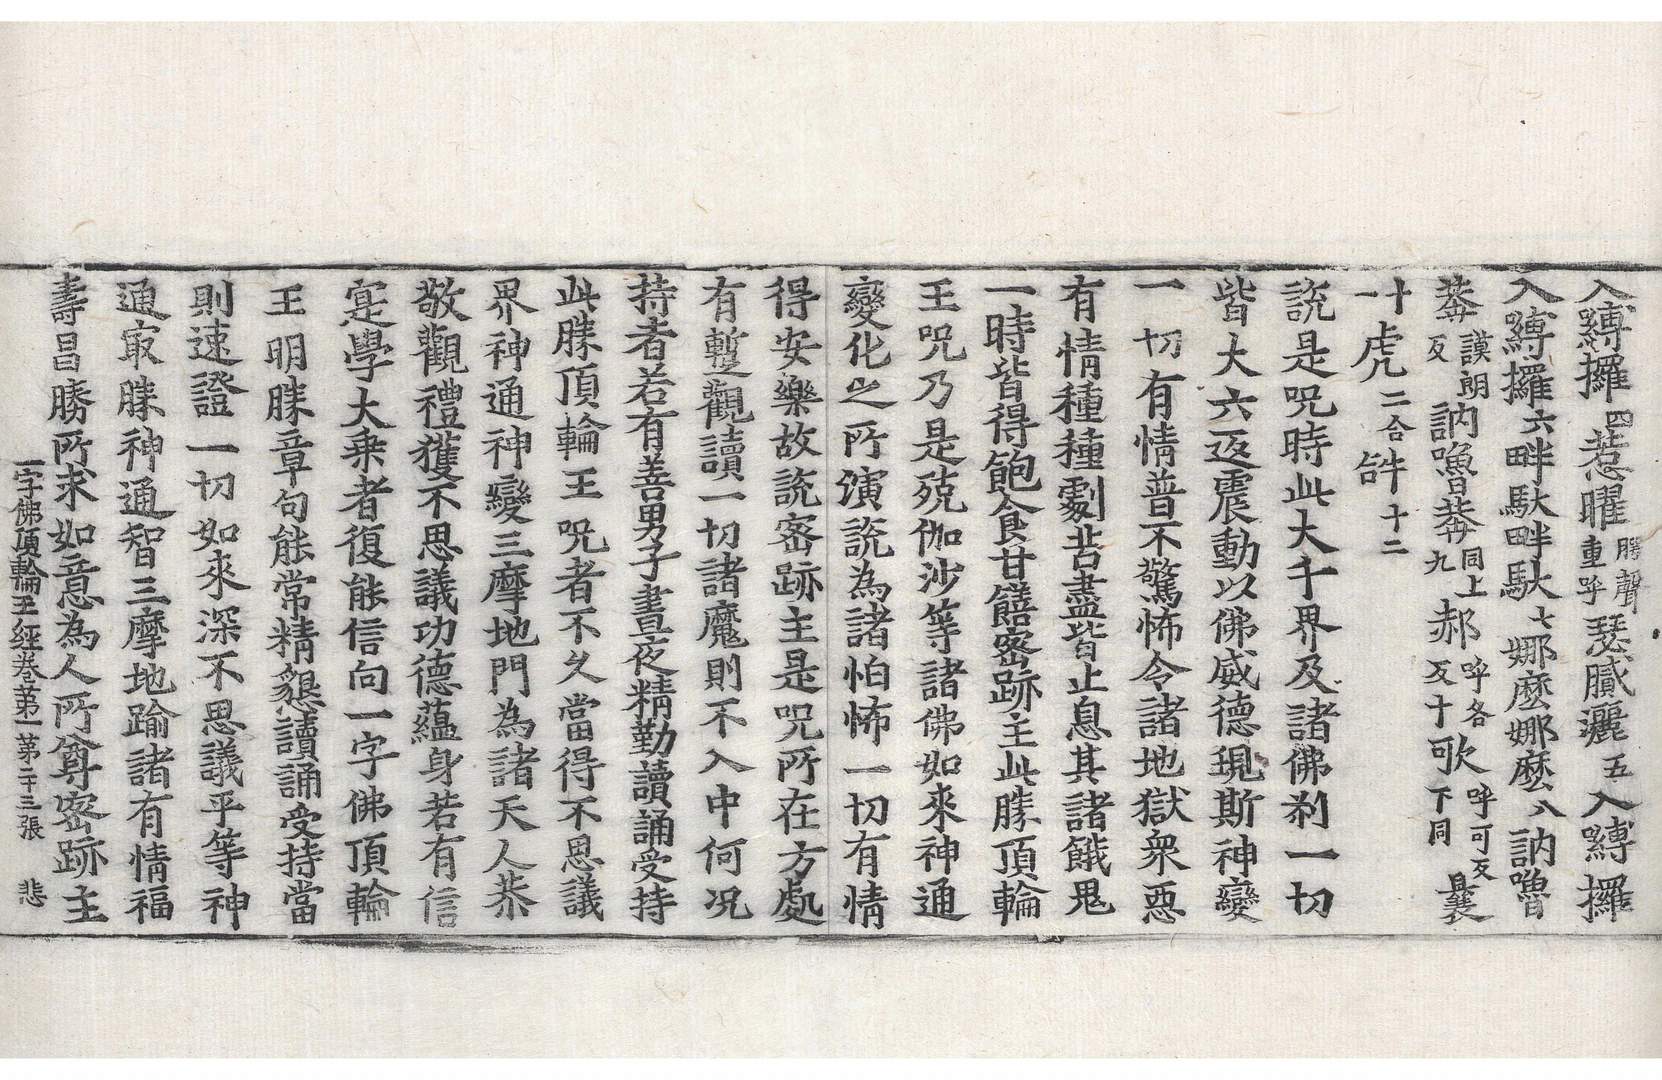 入嚩攞四惹曜重呼腭聲瑟膩灑五入嚩攞
入嚩攞六畔馱畔馱七娜麽娜麽八訥嚕
㯶謨朗反訥嚕㯶同上九郝呼各反十㰤呼可反下同曩
十一虎二合𤙖十二
説是呪時此大千界及諸佛刹一切
皆大六返震動以佛威德現斯神變
一切有情普不驚怖令諸地獄衆惡
有情種種劇苦盡皆止息其諸餓鬼
一時皆得飽食甘饍密跡主此勝頂輪
王呪乃是殑伽沙等諸佛如來神通
變化之所演説為諸怕怖一切有情
得安樂故説密跡主是呪所在方處
有蹔觀讀一切諸魔則不入中何况
持者若有善男子晝夜精勤讀誦受持
此勝頂輪王呪者不久當得不思議
界神通神變三摩地門為諸天人恭
敬觀禮獲不思議功德藴身若有信
寔學大乘者復能信向一字佛頂輪
王明勝章句能常精懇讀誦受持當
則速證一切如來深不思議平等神
通㝡勝神通智三摩地踰諸有情福
壽昌勝所求如意為人所尊密跡主
一字佛頂輪王經卷第一 第二十三張 悲